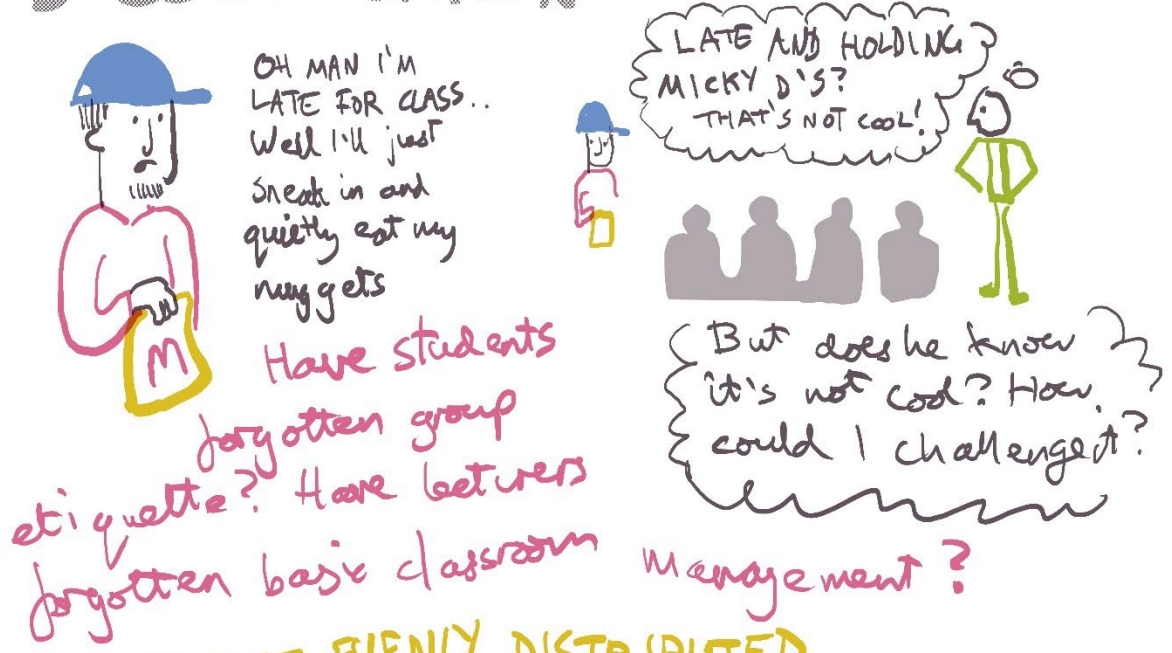 OH MAN I'M
LATE FOR CLASS..
Well I'll just
sneak in and
quietly eat my
nuggets
M
LATE AND HOLDING
MICKY D'S?
THAT'S NOT COOL!
But does he know
it's not cool? How
could I challenge it?
Have students
forgotten group
etiquette? Have lecturers
forgotten basic classroom management?
DISTRIBUTED